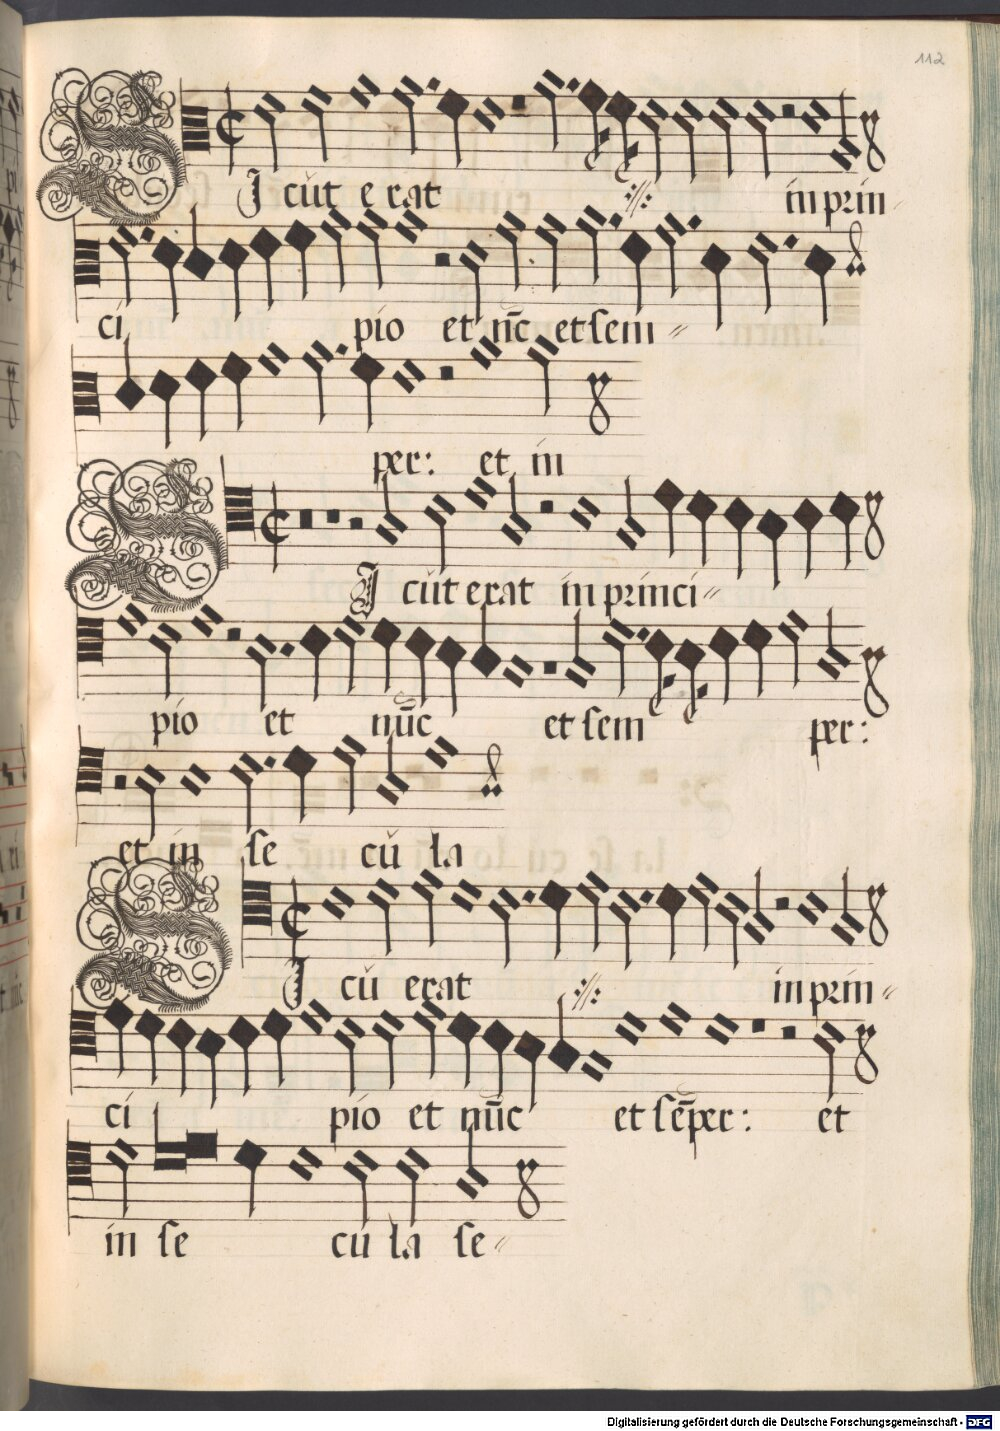 112
SIcut erat ://: in prin-
ci pio et nūc et sem-
per: et in
SIcut erat in princi-
pio et nūc et sem per:
et in se cu la
SI cu erat ://: in prin-
ci pio et nūc et sēper: et
in se cu la se-
Digitalisierung gefördert durch die Deutsche Forschungsgemeinschaft - DFG